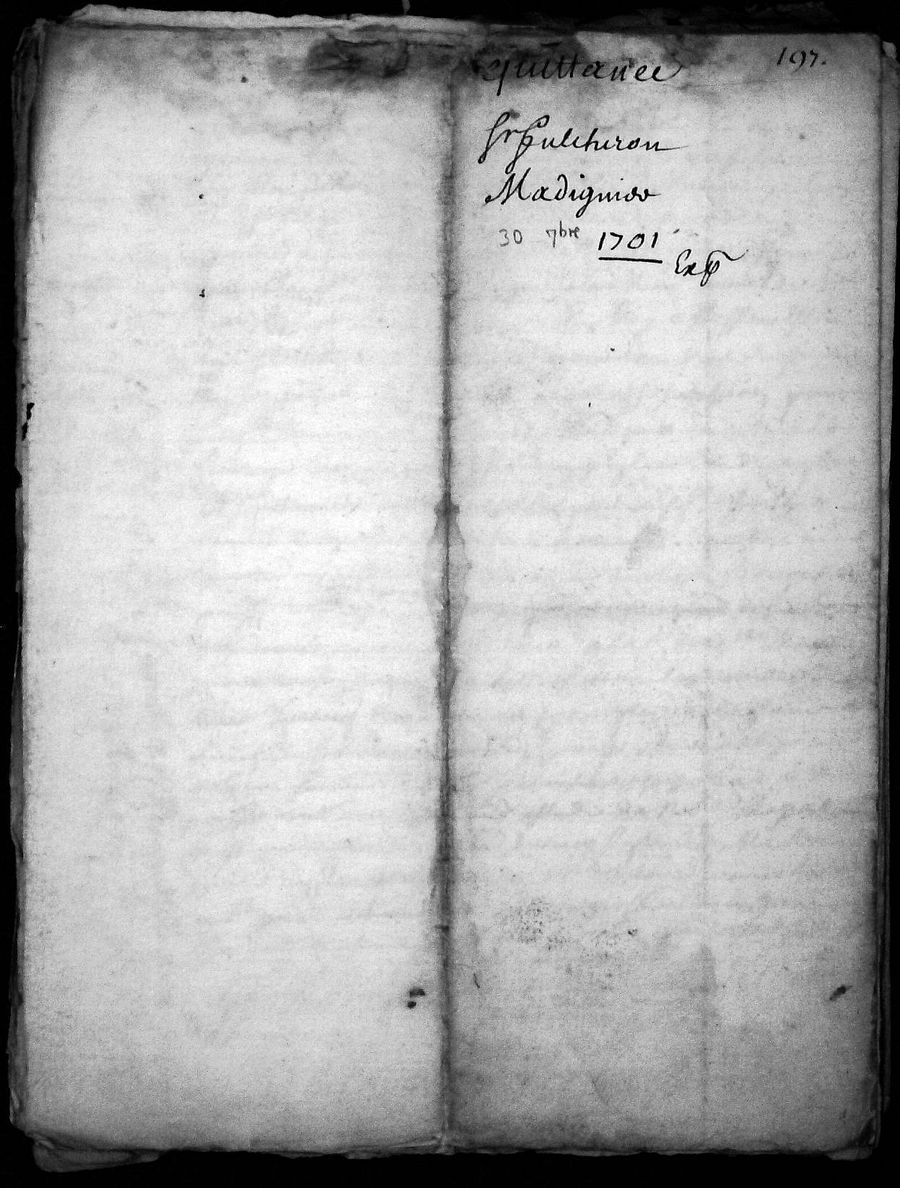 quittance 197.
Sr Pulcheron
Madignier
30 7bre 1701
Exp